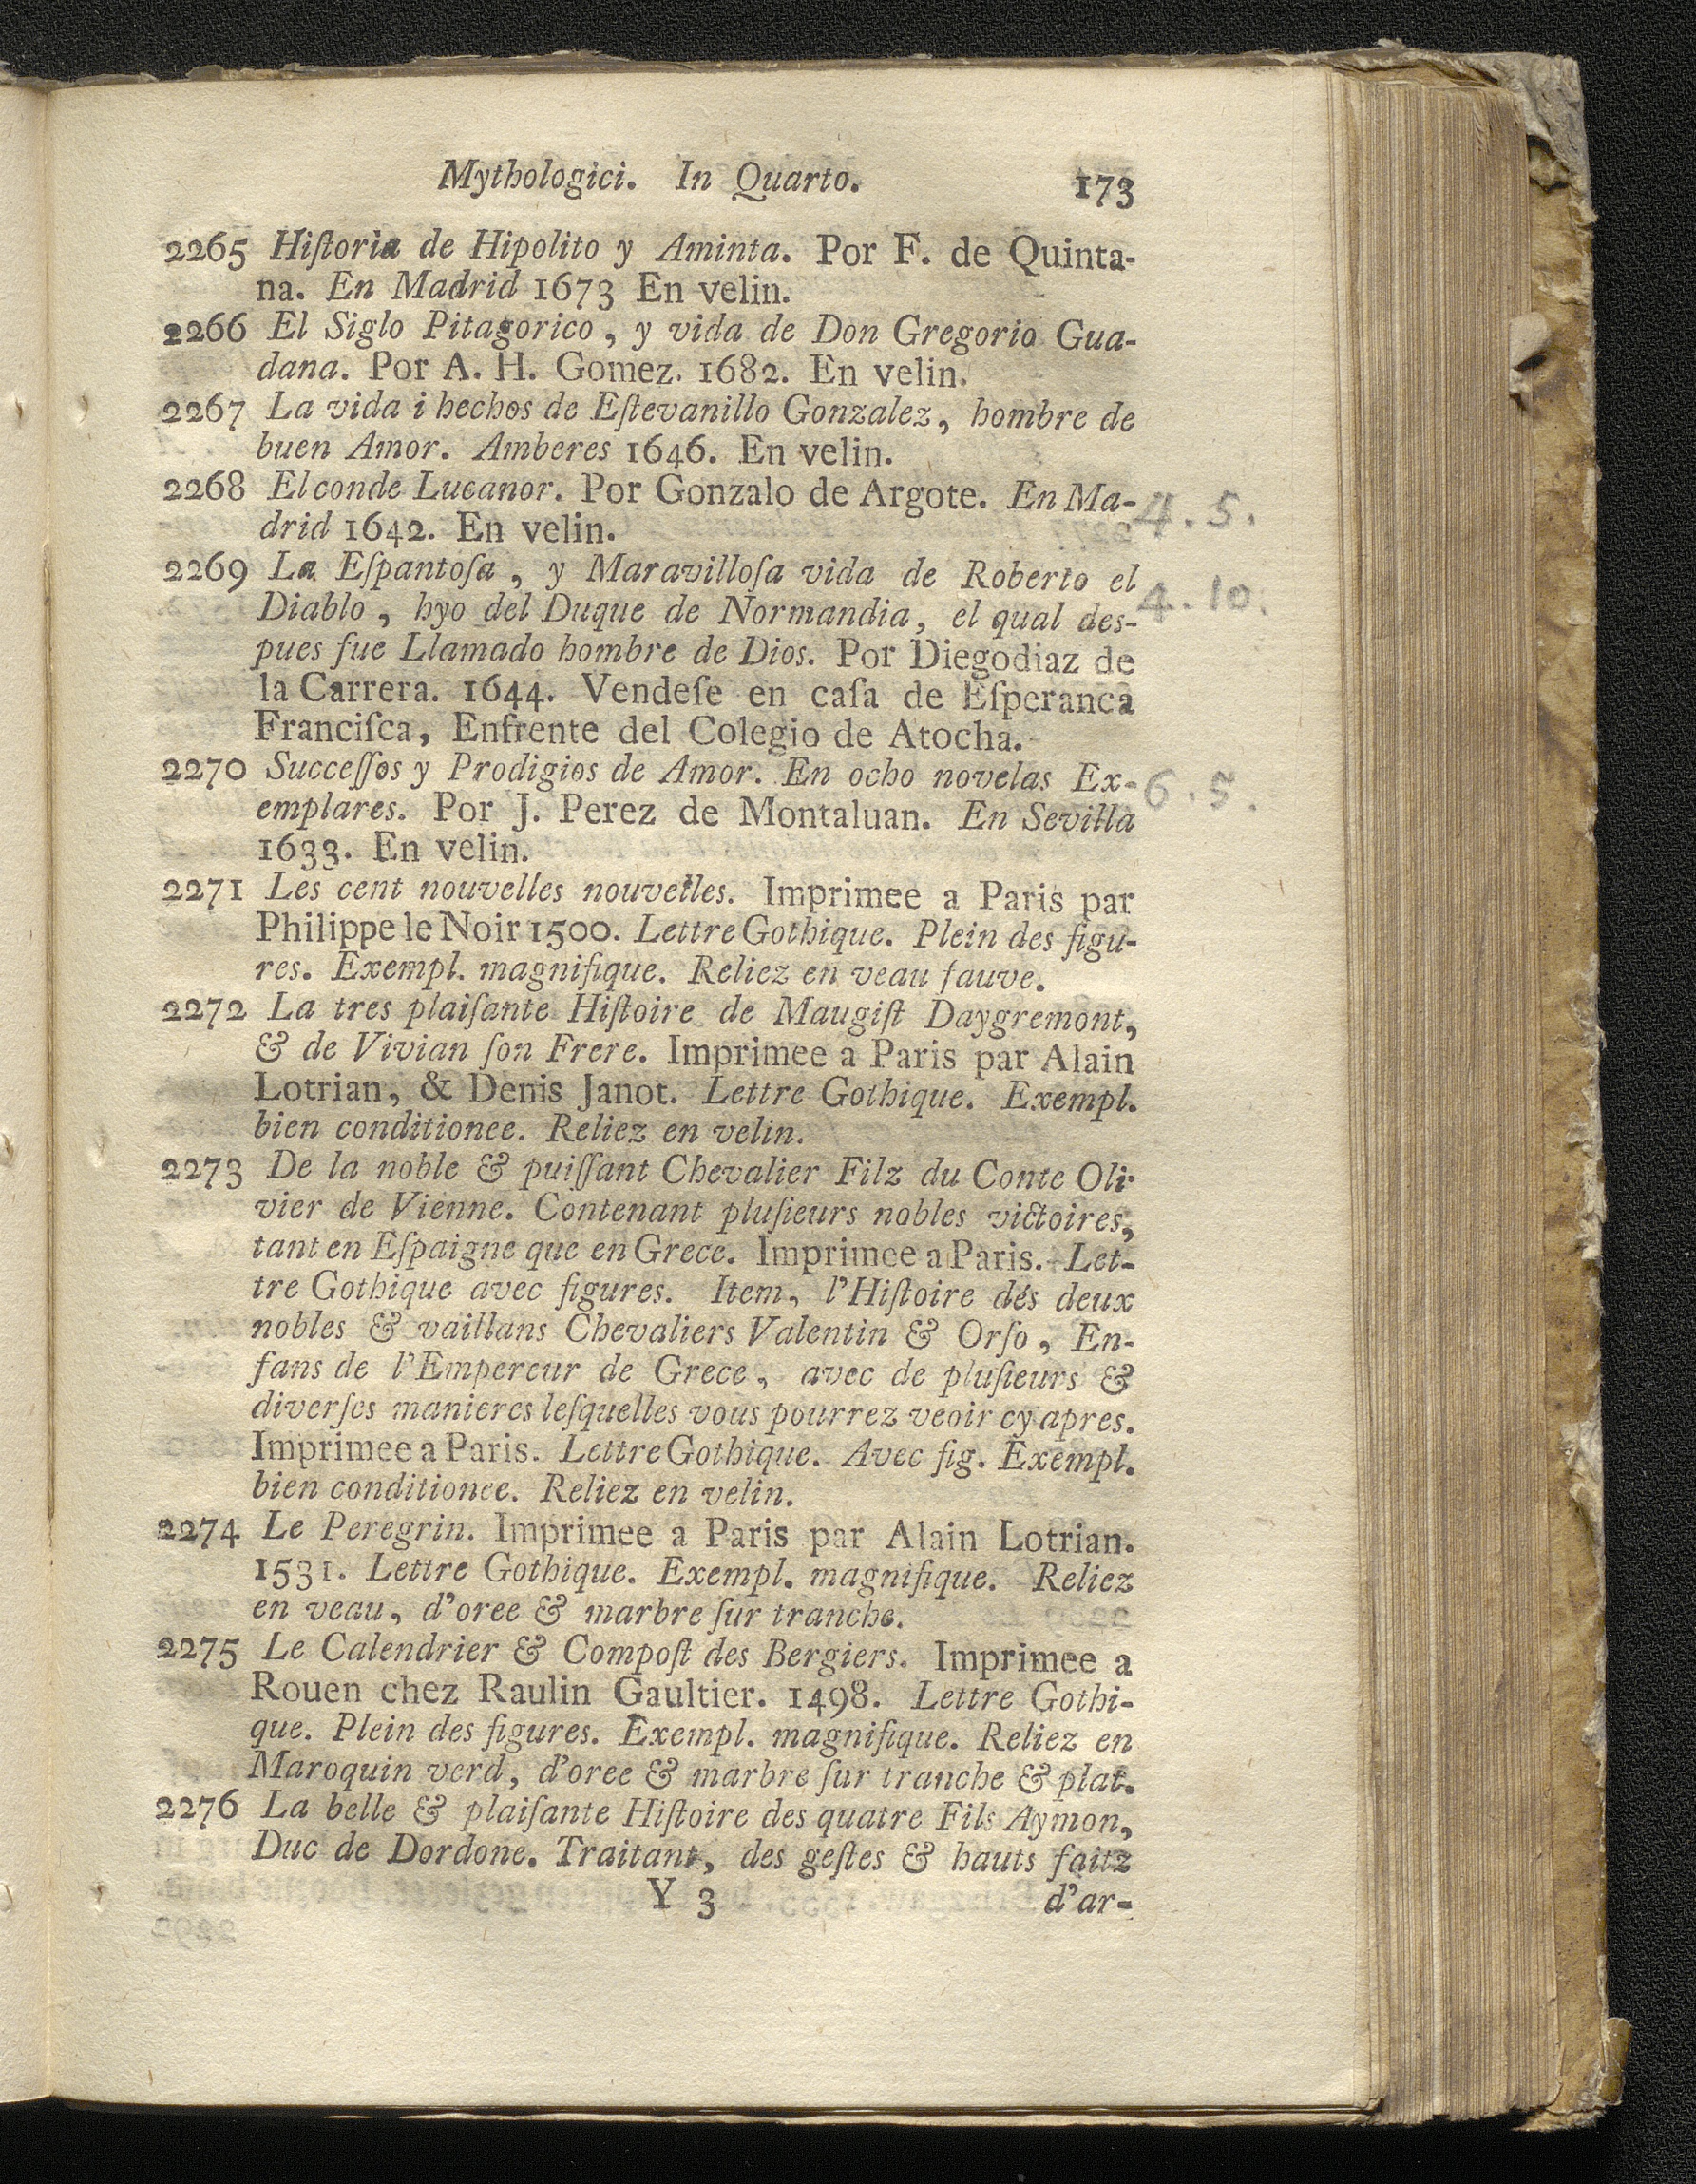 Mythologici. In Quarto. 173
2265 Hiſtoria de Hipolito y Aminta. Por F. de Quinta-
na. En Madrid 1673 En velin.
2266 El Siglo Pitagorico, y vida de Don Gregorio Gua-
dana. Por A. H. Gomez. 1682. En velin.
2267 La vida i hechos de Eſtevanillo Gonzalez, hombre de
buen Amor. Amberes 1646. En velin.
2268 El conde Lucanor. Por Gonzalo de Argote. En Ma- 4.5.
drid 1642. En velin.
2269 La Eſpantoſa, y Maravilloſa vida de Roberto el
Diablo, hyo del Duque de Normandia, el qual des- 4.10.
pues fue Llamado hombre de Dios. Por Diegodiaz de
la Carrera. 1644. Vendeſe en caſa de Eſperanca
Franciſca, Enfrente del Colegio de Atocha.
2270 Succeſſos y Prodigios de Amor. En ocho novelas Ex- 6.5.
emplares. Por J. Perez de Montaluan. En Sevilla
1633. En velin.
2271 Les cent nouvelles nouvelles. Imprimee a Paris par
Philippe le Noir 1500. Lettre Gothique. Plein des figu-
res. Exempl. magnifique. Reliez en veau fauve.
2272 La tres plaiſante Hiſtoire de Maugiſt Daygremont,
& de Vivian ſon Frere. Imprimee a Paris par Alain
Lotrian, & Denis Janot. Lettre Gothique. Exempl.
bien conditionee. Reliez en velin.
2273 De la noble & puiſſant Chevalier Filz du Conte Oli-
vier de Vienne. Contenant pluſieurs nobles victoires,
tant en Eſpaigne que en Grece. Imprimee a Paris. Let-
tre Gothique avec figures. Item, l'Hiſtoire dés deux
nobles & vaillans Chevaliers Valentin & Orſo, En-
fans de l'Empereur de Grece, avec de pluſieurs &
diverſes manieres leſquelles vous pourrez veoir cy apres.
Imprimee a Paris. Lettre Gothique. Avec fig. Exempl.
bien conditionee. Reliez en velin.
2274 Le Peregrin. Imprimee a Paris par Alain Lotrian.
1531. Lettre Gothique. Exempl. magnifique. Reliez
en veau, d'oree & marbre ſur tranche.
2275 Le Calendrier & Compoſt des Bergiers. Imprimee a
Rouen chez Raulin Gaultier. 1498. Lettre Gothi-
que. Plein des figures. Exempl. magnifique. Reliez en
Maroquin verd, d'oree & marbre ſur tranche & plat.
2276 La belle & plaiſante Hiſtoire des quatre Fils Aymon,
Duc de Dordone. Traitant, des geſtes & hauts faitz
Y 3 d'ar-